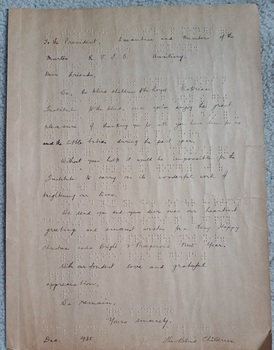 To the President, Executive and Members of the
Dear Friends,
We, the blind children of the Royal Victorian
Institute for the blind, are again enjoying the great
pleasure of thanking you for all you have done for us
and the little babies during the past year.
Without your help it would be impossible for the
Institute to carry on its wonderful work of
brightening our lives.
We send you and your dear ones our heartiest
greetings and sincerest wishes for a Very Happy
Xmas and Bright & Prosperous New Year.
With our fondest love and grateful
appreciation,
We remain,
Yours sincerely,
Dec. The Blind Children